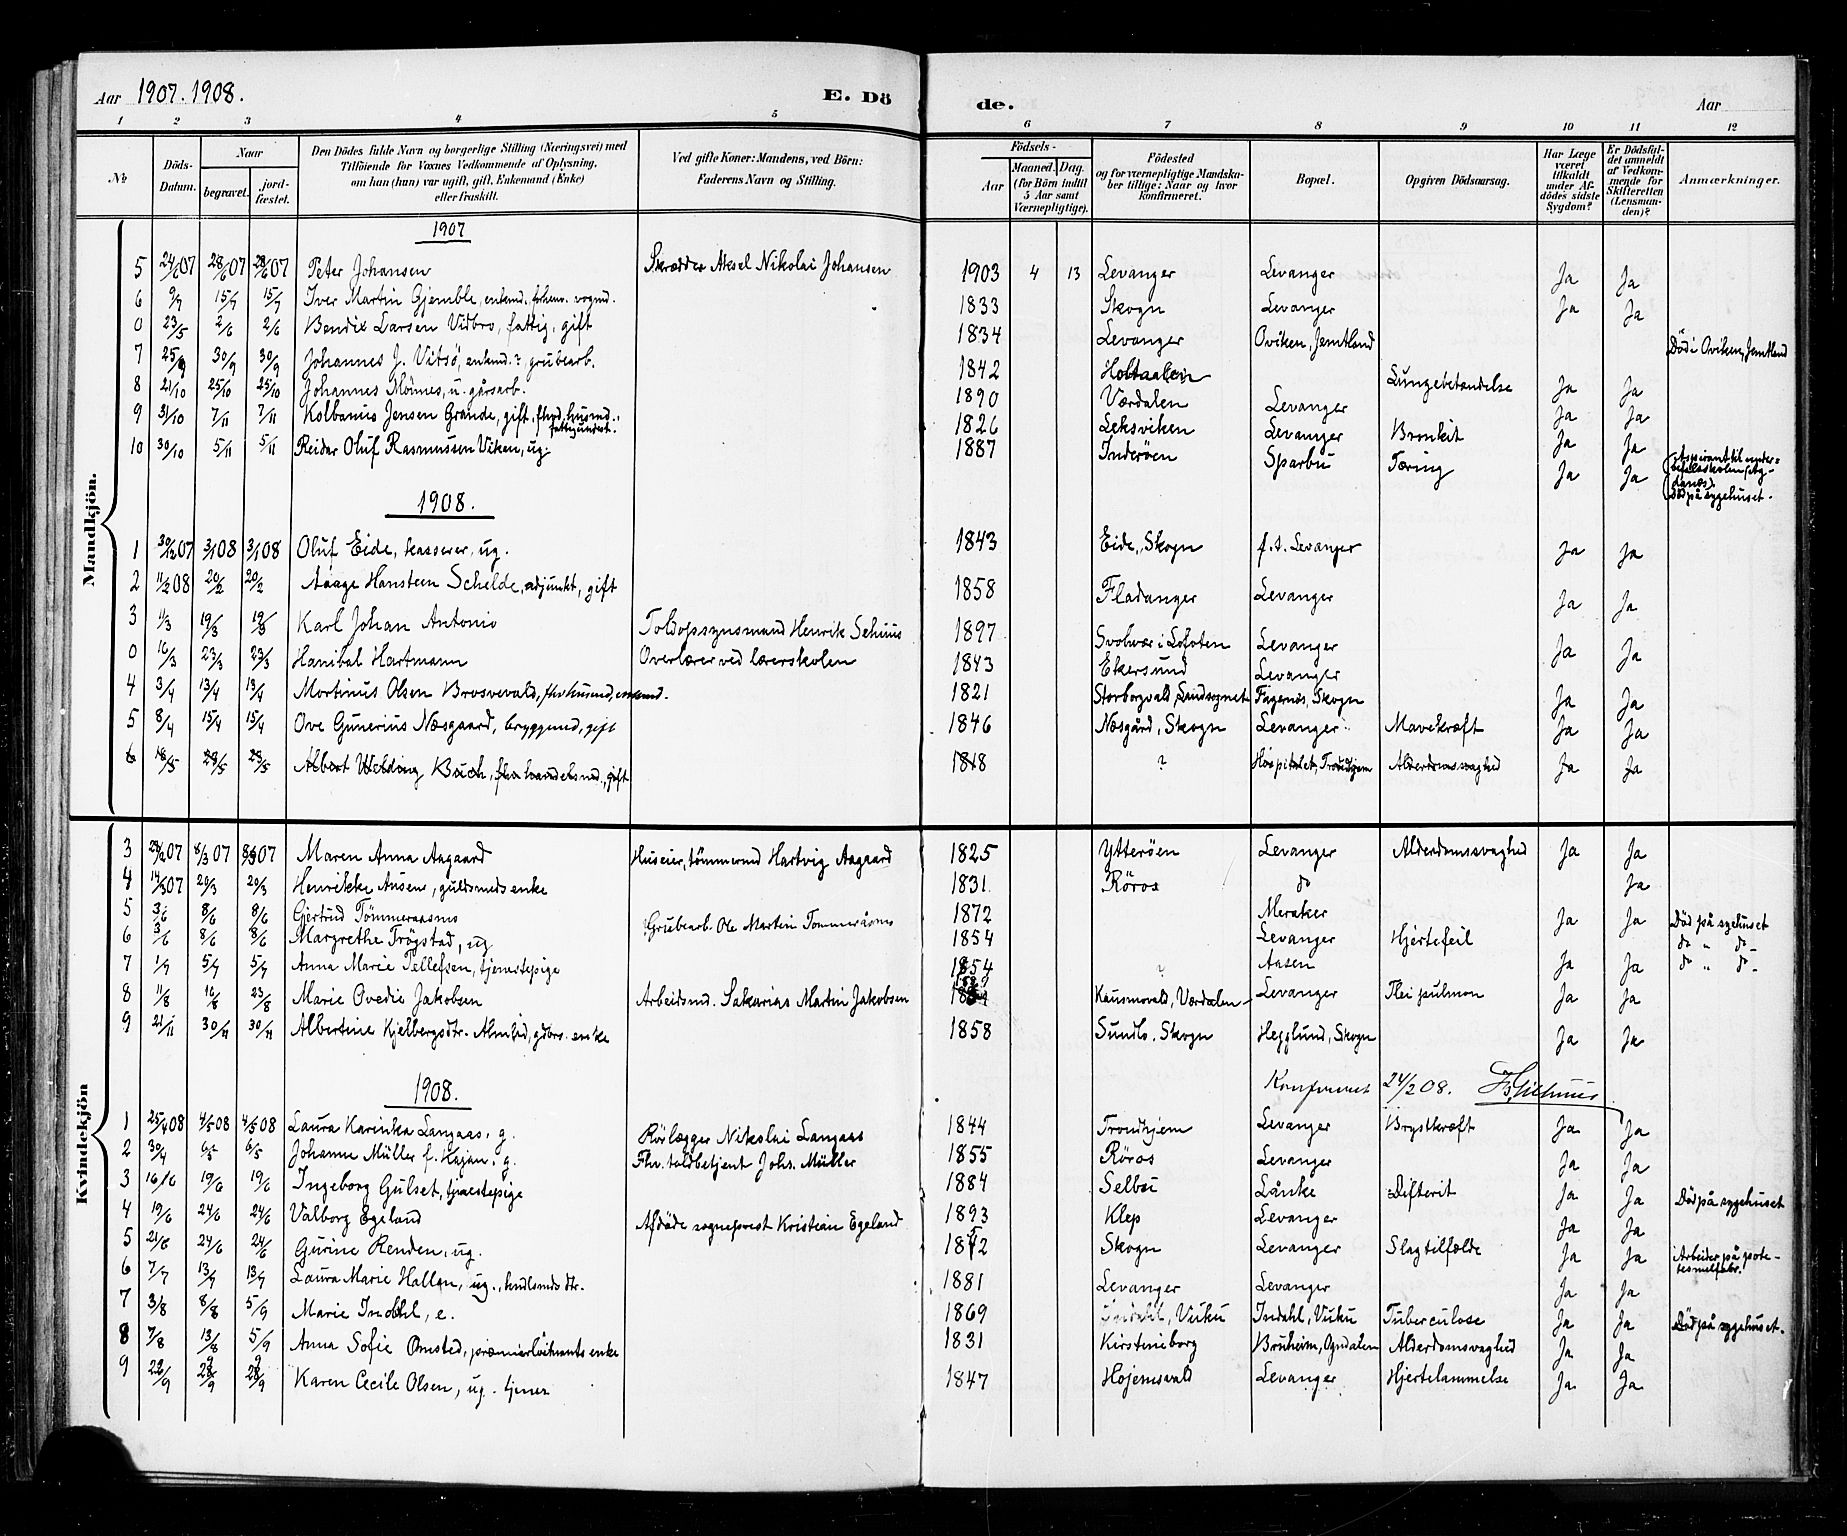 Aar 1907. 1908. E. Dö de. Aar
1 2 3 4 5 6 7 8 9 10 11 12
№ Döds-Datum. Naar begravet. jordfæstet. Den Dödes fulde Navn og borgerlige Stilling (Næringsvei) med Tilföiende for Voxnes Vedkommende af Oplysning, om han (hun) var ugift, gift, Enkemand (Enke) eller fraskilt. Ved gifte Koner: Mandens, ved Börn: Faderens Navn og Stilling. Födsels- Aar Maaned. Dag. (for Börn indtil 5 Aar samt Værnepligtige). Födested og for værnepligtige Mandskaber tillige: Naar og hvor konfirmeret. Bopæl. Opgiven Dödsaarsag. Har Læge været tilkaldt under Afdödes sidste Sygdom? Er Dödsfaldet anmeldt af Vedkommende for Skifteretten (Lensmanden)? Anmærkninger.
Mandkjön.
1907
5 24/6 07 28/6 07 28/6 07 Peter Johansen Skrædder Aksel Nikolai Johansen 1903 4 13 Levanger Levanger Ja Ja
6 9/7 15/7 15/7 Iver Martin Gjemble, enkmd. forhenv. vognmd. 1833 Skogn Levanger Ja Ja
0 23/5 2/6 2/6 Bendix Larsen Vidbro, fattig, gift 1834 Levanger Oviken, Jemtland Död i Oviken, Jemtland
7 25/9 30/9 30/9 Johannes J. Vitsö, enkmd.? grubearb. 1842 Holtaalen Lungebetændelse Ja Ja
8 21/10 25/10 25/10 Johannes Mönnes, u. gårsarb. 1890 Værdalen Levanger Ja Ja
9 31/10 7/11 7/11 Kolbanus Jensen Grande, gift, fhvd. husmd., fattigunderst. 1826 Leksviken Levanger Bronkit Ja Ja
10 30/10 5/11 5/11 Reidar Oluf Rasmussen Viken, ug. 1887 Inderöen Sparbu Tæring Ja Ja Aspirant til underbefalsskolen (Agdanæs). Död på sygehuset.
1908.
1 30/12 07 3/1 08 3/1 08 Oluf Eide, kasserer, ug. 1843 Eide, Skogn f. t. Levanger Ja Ja
2 11/2 08 20/2 20/2 Aaage Hansteen Schelde, adjunkt, gift 1858 Fladanger Levanger Ja Ja
3 11/3 19/3 19/3 Karl Johan Antonio Toldopssynsmand Henrik Sehuus 1897 Svolvær i Lofoten Levanger Ja Ja
0 16/3 23/3 23/3 Hanibal Hartmann Overlærer ved lærerskolen 1843 Ekersund Levanger
4 3/4 13/4 13/4 Martinus Olsen Brosvevald, fhv husmd, enkemd. 1821 Storborgvald, Sandsognet Fagenös, Skogn Ja Ja
5 8/4 15/4 15/4 Ove Gunerius Næsgaard, bryggmd, gift 1846 Næsgård, Skogn Levanger Mavekræft Ja Ja
6 18/5 23/5 23/5 Albert Welding Buch, fhv handelsmd., gift 1818 ? Hospitalet, Trondhjem Alderdomssvaghed Ja Ja
Kvindekjön
3 28/2 07 8/3 07 8/3 07 Maren Anna Aagaard Huseier, tömmermd Hartvig Aagaard 1825 Ytteröen Levanger Alderdomssvaghed Ja Ja
4 14/3 07 20/3 20/3 Henrikke Ausen, guldsmeds enke 1831 Röros do Ja
5 3/6 8/6 8/6 Gjertrud Tömmeraasmo Grubearb. Ole Martin Tommeråsmo 1872 Meraker Ja Ja Död på sygehuset
6 3/6 8/6 8/6 Margrethe Trögstad, ug 1854 Levanger Hjertefeil do " do
7 1/7 5/7 5/7 Anna Marie Tellefsen, tjenestepige 1854 ? Aasen Ja Ja do " do
8 11/8 16/8 23/8 Marie Ovedie Jakobsen Arbeidsmd. Sakarias Martin Jakobsen Kausmovald, Værdalen Levanger Flei pulmon Ja Ja
9 21/11 30/11 30/11 Albertine Kjelbergsdtr. Almlid, gdbrs. enke 1858 Sundlo, Skogn Hegglund, Skogn Ja Ja
1908. Konfereret 24/2 08.
1 25/4 08 4/5 08 4/5 08 Laura Karinka Langaas, g. Rörlægger Nikolai Langaas 1844 Trondhjem Levanger Brystkræft Ja Ja
2 30/4 6/5 6/5 Johanne Müller f. Kajan, g. Fhv. toldbetjent Johs. Müller 1855 Röros Levanger Ja Ja
3 16/6 19/6 19/6 Ingeborg Gulset, tjenestepige 1884 Selbu Lånke Difterit Ja Ja Död på sygehuset
4 19/6 24/6 24/6 Valborg Egeland Afdöde sogneprest Kristian Egeland 1893 Klep Levanger Ja Ja
5 21/6 24/6 24/6 Gurine Renden, ug. 1872 Skogn Levanger Slagtilfælde Ja Ja Arbeider på potetesmelfabr.
6 7/7 13/7 13/7 Laura Marie Hallan, ug., hndlsmds dtr. 1881 Levanger Levanger Ja Ja
7 3/8 8/8 5/9 Marie Indahl, e. 1869 Indahl, Vuku Indahl, Vuku Tuberculose Ja Ja Död på sygehuset.
8 7/8 13/8 5/9 Anna Sofie Omsted, premierlöitnants enke 1831 Kirstineborg Bruheim, Ogndalen Alderdomsvaghed Ja Ja
9 22/9 28/9 28/9 Karen Cecile Olsen, ug. tjener 1847 Hojemsvald Levanger Hjertelammelse Ja Ja